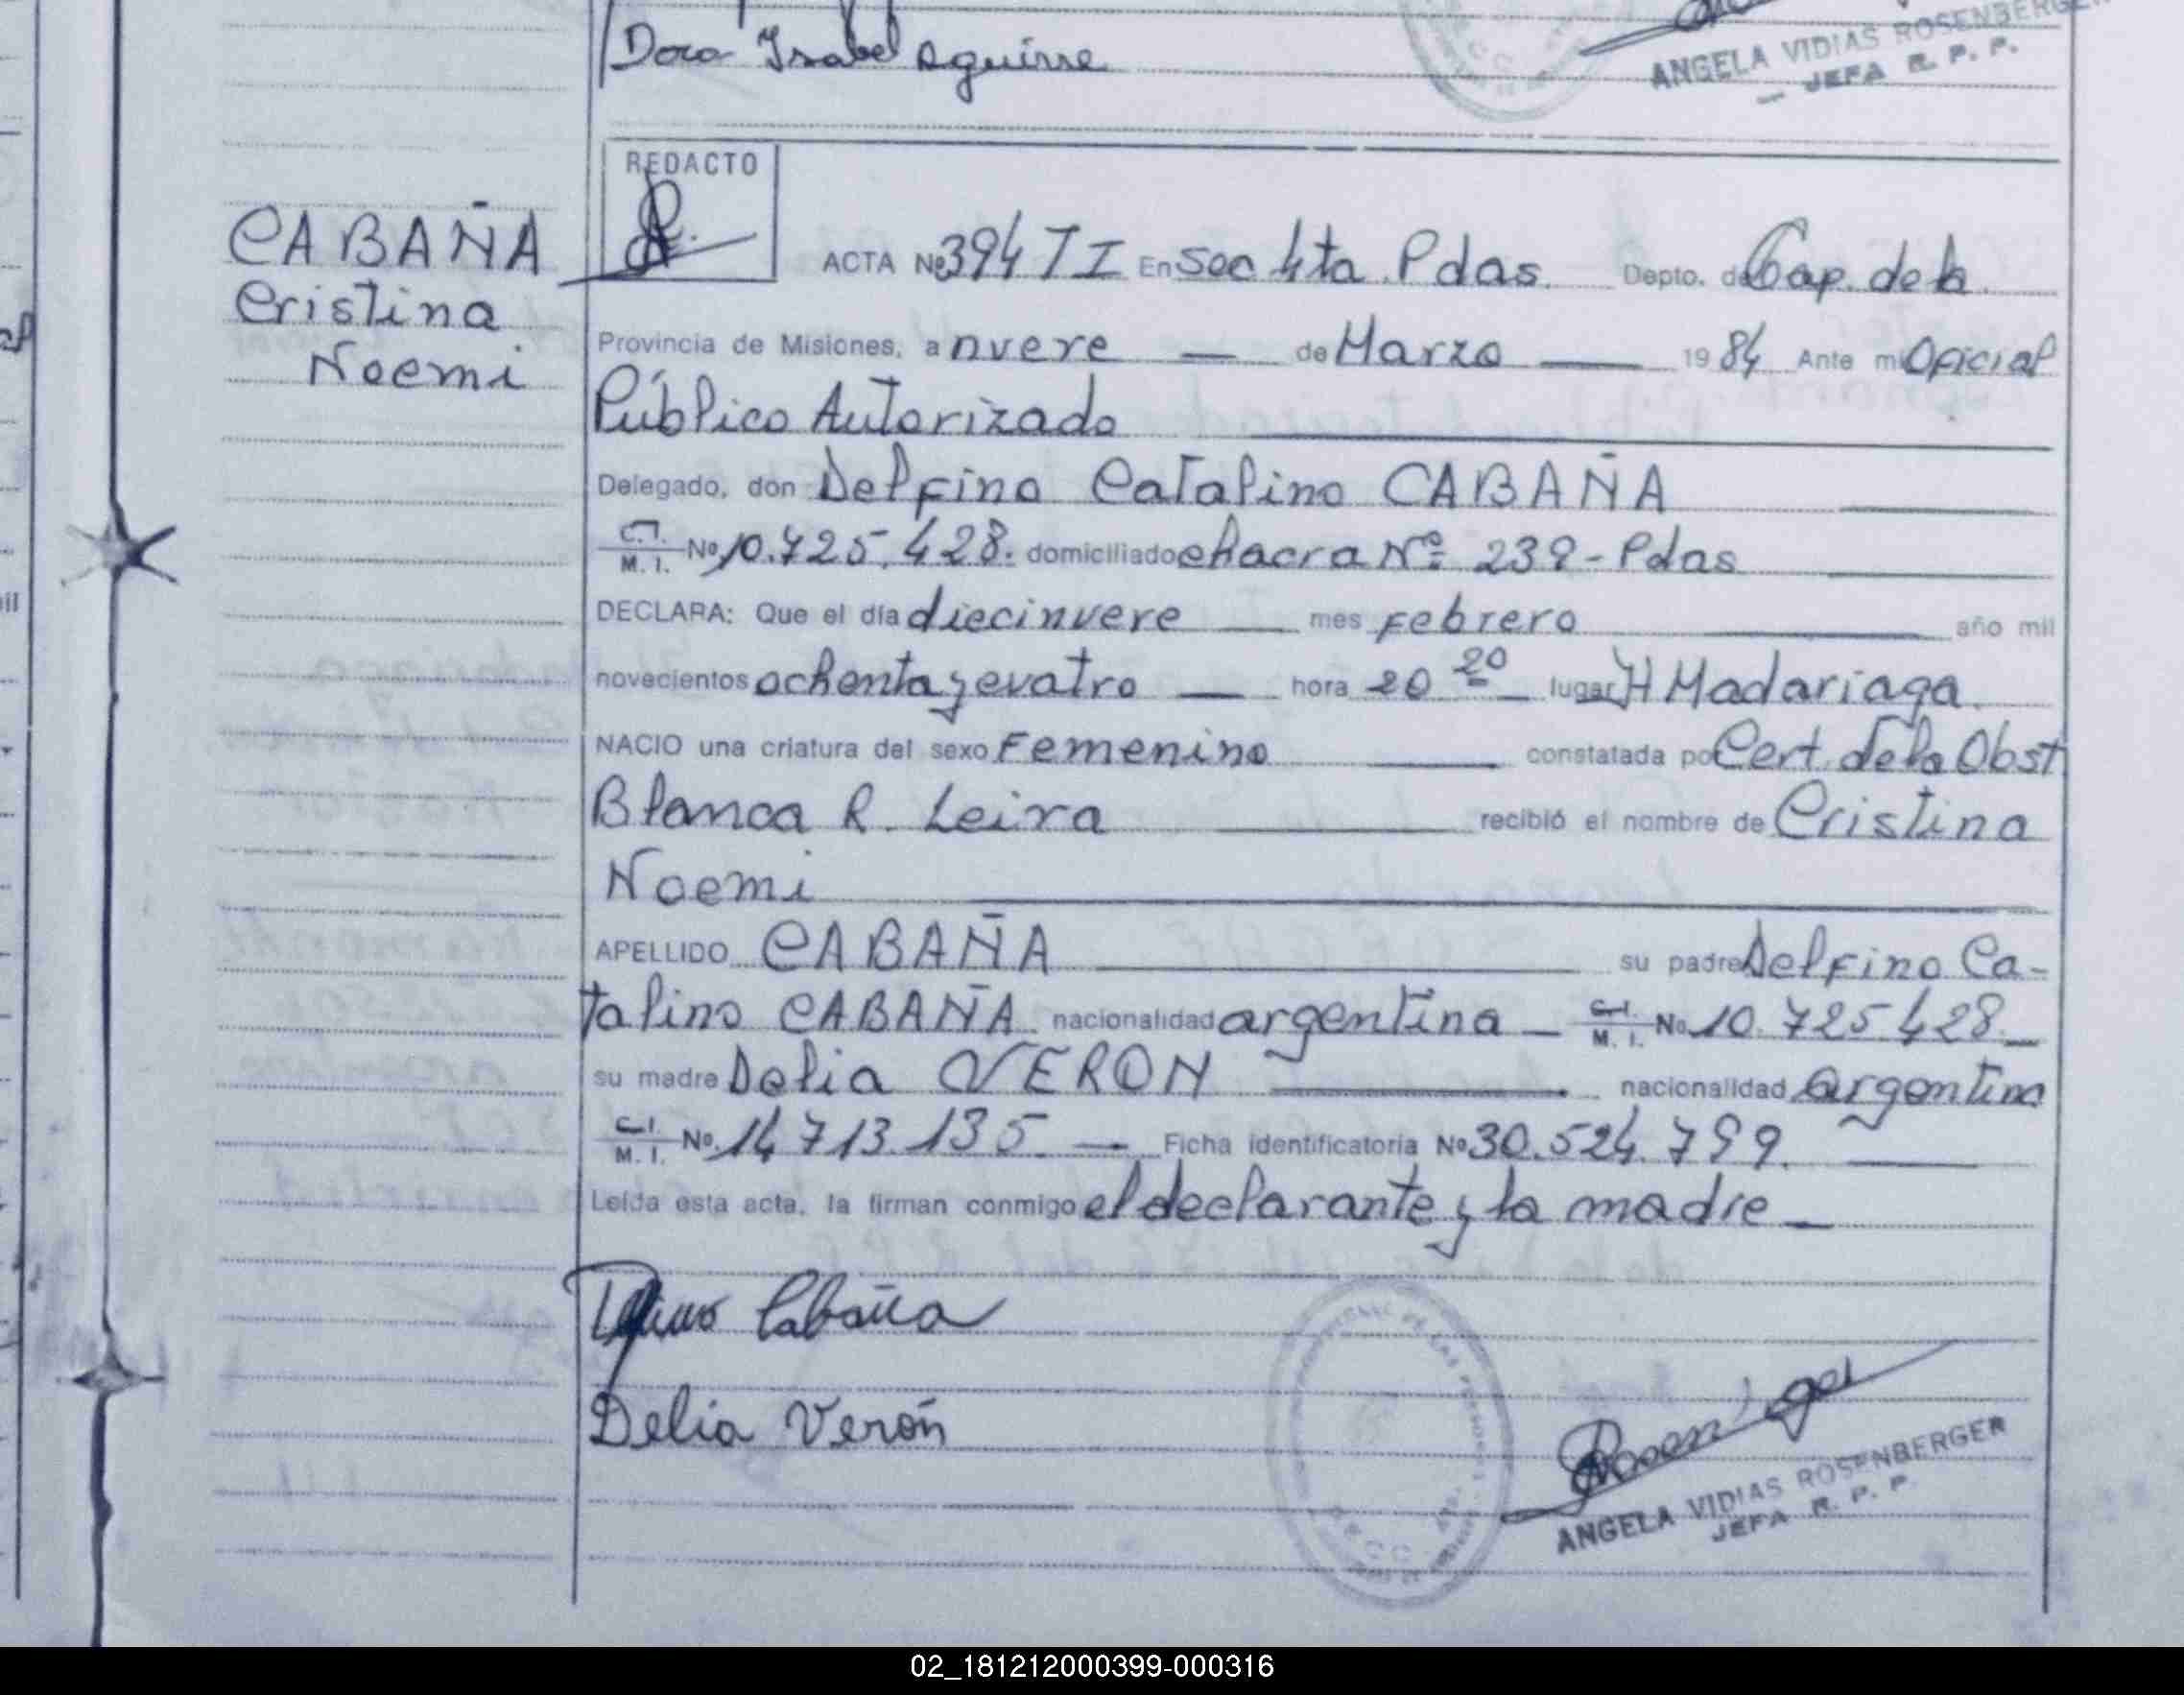 Dora Isabel Aguirre
ANGELA VIDIAS ROSENBERGER
JEFA R. P. P.
REDACTO
CABAÑA
Cristina
Noemi
ACTA Nº 394 TI En Sec 4ta. Pdas. Depto. de Cap. de la
Provincia de Misiones, a nueve de Marzo 1984 Ante mi Oficial
Público Autorizado
Delegado, don Delfino Catalino CABAÑA
C.I. M. I. Nº 10.725.428. domiciliado chacra Nº 239 - Pdas
DECLARA: Que el día diecinueve mes Febrero año mil
novecientos ochenta y cuatro hora 20 20 lugar H Madariaga
NACIO una criatura del sexo Femenino constatada por Cert. de la Obst
Blanca R. Leiva recibió el nombre de Cristina
Noemi
APELLIDO CABAÑA su padre Delfino Ca-
talino CABAÑA nacionalidad argentina C.I. M. I. Nº 10.725.428.
su madre Delia VERON nacionalidad argentina
C.I. M. I. Nº 14.713.135 Ficha identificatoria Nº 30.524.799.
Leída esta acta, la firman conmigo el declarante y la madre
Cabaña
Delia Verón
ANGELA VIDIAS ROSENBERGER
JEFA R. P. P.
02_181212000399-000316